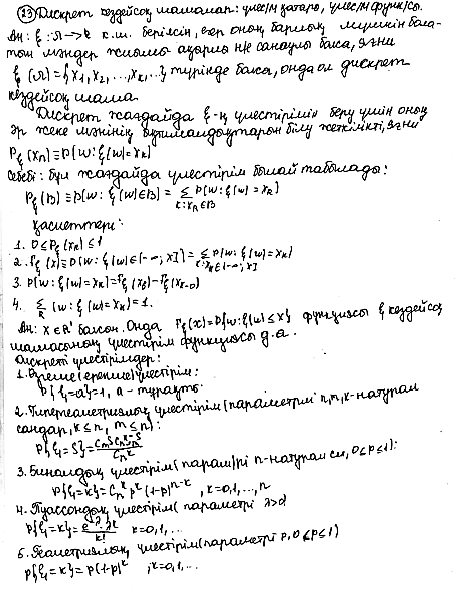 23) Дискрет кездейсоқ шамалар: үлес/м заңы, үлес/м функ/сы.
Ан: ξ: Ω → R к.ш. берілсін, егер оның барлық мүмкін бола-
тын мәндер жиыны ақырлы не саналы болса, яғни
ξ(Ω) = {x₁, x₂, ..., xₖ, ...} түрінде болса, онда ол дискрет
кездейсоқ шама.
Дискрет жағдайда ξ-ң үлестірімін беру үшін оның
әр жеке мәнінің ықтималдықтарын білу жеткілікті, яғни
P_ξ(xₖ) ≡ P(w: ξ(w) = xₖ)
Себебі: бұл жағдайда үлестірім былай табылады:
P_ξ(B) ≡ P(w: ξ(w) ∈ B) = Σ_{k: xₖ∈B} P(w: ξ(w) = xₖ)
Қасиеттері:
1. 0 ≤ P_ξ(xₖ) ≤ 1
2. F_ξ(x) ≡ P(w: ξ(w) ∈ (-∞; x]) = Σ_{k: xₖ∈(-∞; x]} P(w: ξ(w) = xₖ)
3. P(w: ξ(w) = xₖ) = F_ξ(xₖ) - F_ξ(xₖ-0)
4. Σ_k (w: ξ(w) = xₖ) = 1.
Ан: x ∈ R¹ болсын. Онда F_ξ(x) = P{w: ξ(w) ≤ x} функциясы ξ кездейсоқ
шамасының үлестірім функциясы д.а.
Дискретті үлестірімдер:
1. (ерекше) үлестірім:
P{ξ = a} = 1, a - тұрақты.
2. Гипергеометриялық үлестірім (параметрі n, m, k - натурал
сандар, k ≤ n, m ≤ n):
3. Биномдық үлестірім (парам/рі n - натурал сан, 0 ≤ p ≤ 1):
P{ξ = k} = Cₙᵏ pᵏ (1-p)ⁿ⁻ᵏ, k = 0, 1, ..., n
4. Пуассондық үлестірім (параметрі λ > 0
P{ξ = k} = e^{-λ} · λᵏ / k! k = 0, 1, ...
5. Геометриялық үлестірім (параметрі p, 0 ≤ p ≤ 1)
P{ξ = k} = p(1-p)ᵏ ; k = 0, 1, ...